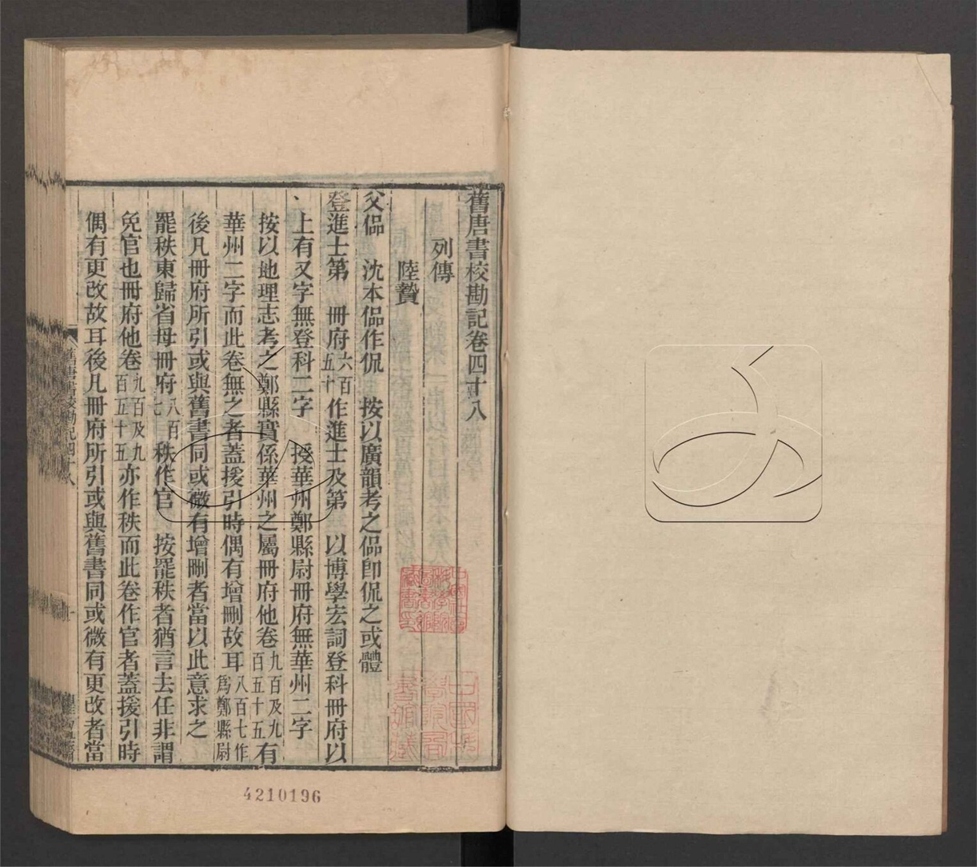 舊唐書校勘記卷四十八
列傳
陸贄
父侃 沈本偘作侃 按以廣韻考之偘卽侃之或體
登進士第 冊府六百五十作進士及第 以博學宏詞登科冊府以
上有又字無登科二字 授華州鄭縣尉冊府無華州二字
按以地理志考之鄭縣實係華州之屬冊府他卷九百及九百五十五有
華州二字而此卷無之者蓋援引時偶有增刪故耳八百七作爲鄭縣尉
後凡冊府所引或與舊書同或微有增刪者當以此意求之
罷秩東歸省母冊府八百七秩作官 按罷秩者猶言去任非謂
免官也冊府他卷九百及九百五十五亦作秩而此卷作官者蓋援引時
偶有更改故耳後凡冊府所引或與舊書同或微有更改者當
4210196